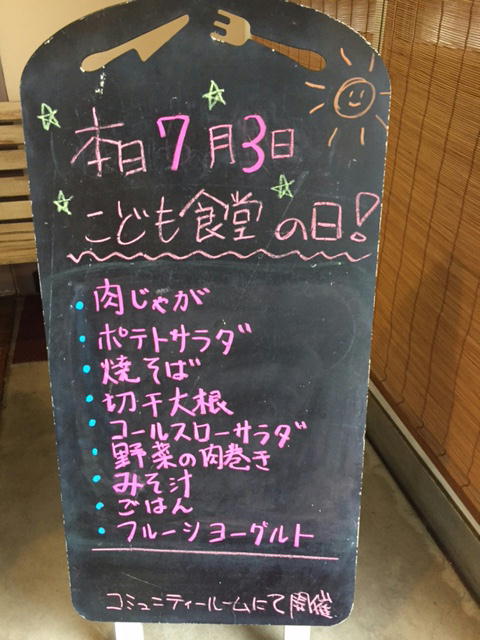 本日7月3日
こども食堂の日!
・肉じゃが
・ポテトサラダ
・焼そば
・切干大根
・コールスローサラダ
・野菜の肉巻き
・みそ汁
・ごはん
・フルーツヨーグルト
コミュニティールームにて開催